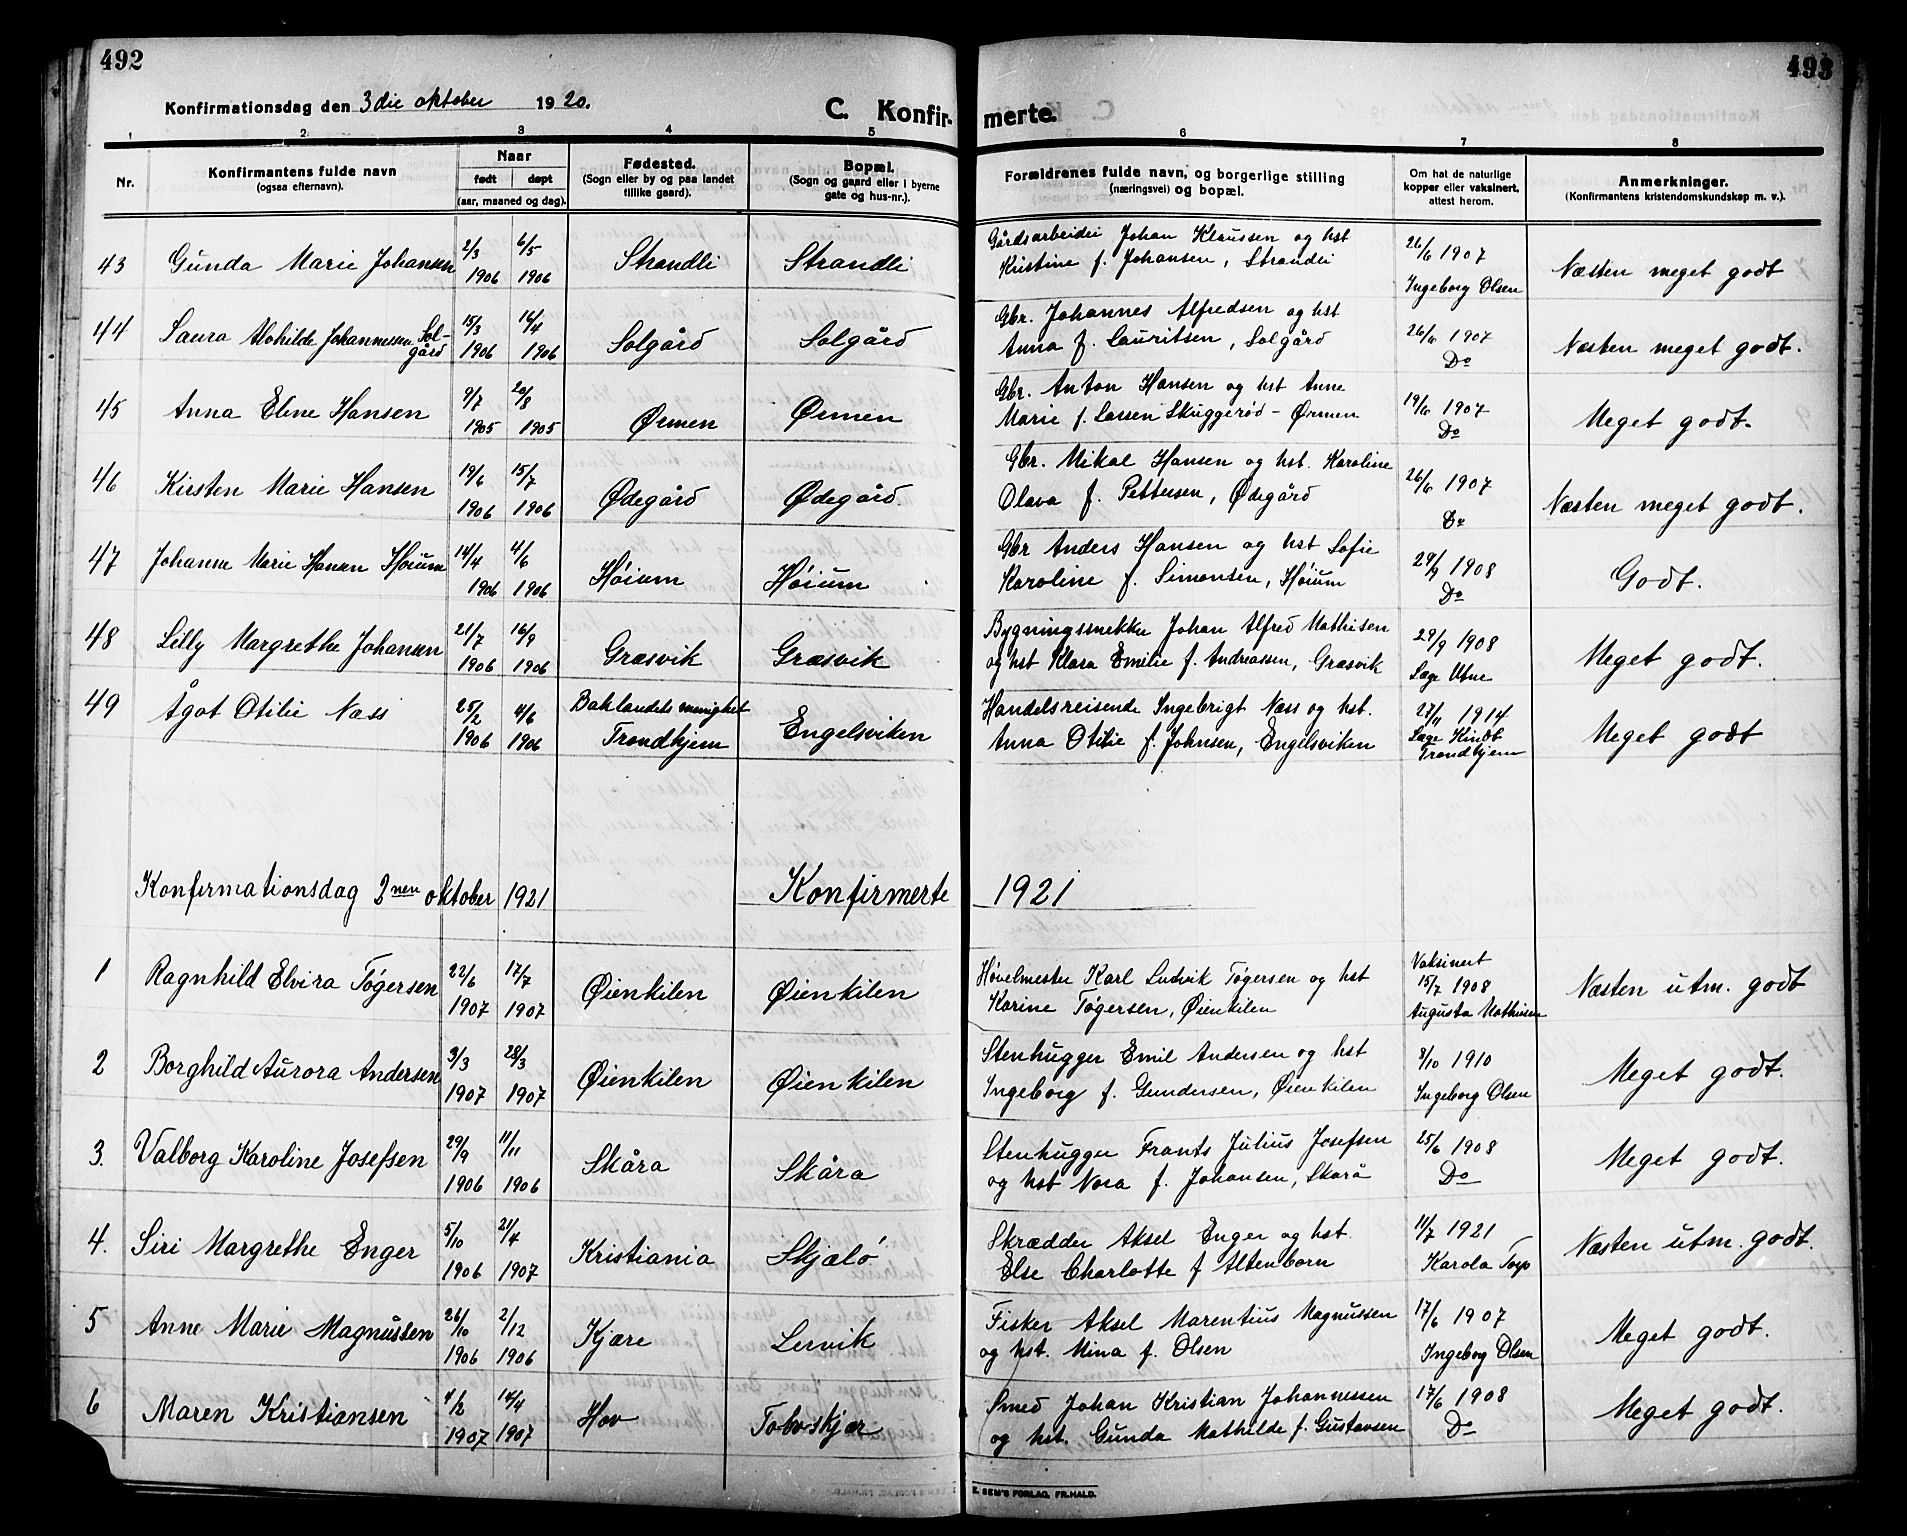 492
493
Konfirmationsdag den 3die oktober 1920.
C. Konfir- merte.
1 2 3 4 5 6 7 8
Nr.
Konfirmantens fulde navn
(ogsaa efternavn).
Naar
født døpt
(aar, maaned og dag).
Fødested.
(Sogn eller by og paa landet
tillike gaard).
Bopæl.
(Sogn og gaard eller i byerne
gate og hus-nr.).
Forældrenes fulde navn, og borgerlige stilling
(næringsvei) og bopæl.
Om hat de naturlige
kopper eller vaksinert,
attest herom.
Anmerkninger.
(Konfirmantens kristendomskundskap m. v.).
43 Gunda Marie Johansen 2/3 1906 6/5 1906 Strandli Strandli
Gårdsarbeider Johan Klaussen og hst
Kristine f. Johansen, Strandli
26/6 1907
Ingeborg Olsen
Næsten meget godt
44 Laura Mathilde Johannessen Sol-
gård
15/3 1906 16/4 1906 Solgård Solgård
Gbr. Johannes Alfredsen og hst
Anna f. Lauritsen, Solgård
26/6 1907
Do
Næsten meget godt.
45 Anna Eline Hansen 9/7 1905 20/8 1905 Ørmen Ørmen
Gbr. Anton Hansen og hst Anne
Marie f. Larsen Skuggerød - Ørmen
19/6 1907
Do
Meget godt.
46 Kirsten Marie Hansen 19/6 1906 15/7 1906 Ødegård Ødegård.
Gbr. Mikal Hansen og hst. Karoline
Olava f. Pettersen, Ødegård
26/6 1907
Do
Næsten meget godt.
47 Johanne Marie Hansen Høium 14/4 1906 4/6 1906 Høium Høium
Gbr Anders Hansen og hst Sofie
Karoline f. Simonsen, Høium
29/9 1908
Do
Godt.
48 Lilly Margrethe Johansen 21/7 1906 16/9 1906 Græsvik Græsvik
Bygningssnekker Johan Alfred Mathisen
og hst Klara Emilie f. Andreassen, Græsvik
29/9 1908
Læge Utne
Meget godt.
49 Ågot Otilie Næss 25/2 1906 4/6 1906 Baklandets menighet
Trondhjem
Engelsviken
Handelsreisende Ingebrigt Næss og hst.
Anna Otilie f. Johnsen, Engelsviken
27/11 1914
Læge Hindt
Trondhjem
Meget godt
Konfirmationsdag 2nen oktober 1921 Konfirmerte 1921
1 Ragnhild Elvira Tøgersen 22/6 1907 17/7 1907 Øienkilen Øienkilen
Høvelmester Karl Ludvik Tøgersen og hst
Karine Tøgersen, Øienkilen
Vaksinert
15/7 1908
Augusta Mathisen
Næsten utm. godt
2 Borghild Aurora Andersen 3/3 1907 28/3 1907 Øienkilen Øienkilen
Stenhugger Emil Andersen og hst
Ingeborg f. Gundersen, Øienkilen
8/10 1910
Ingeborg Olsen
Meget godt.
3. Valborg Karoline Josefsen 29/9 1906 11/11 1906 Skåra Skåra
Stenhugger Frants Julius Josefsen
og hst Nora f. Johansen, Skara
25/6 1908
Do
Meget godt.
4. Siri Margrethe Enger 5/10 1906 21/4 1907 Kristiania Skjælø
Skrædder Aksel Enger og hst.
Else Charlotte f Altenborn
11/7 1921
Karola Torp
Næsten utm. godt.
5 Anne Marie Magnussen 26/10 1906 2/12 1906 Kjære Lervik
Fisker Aksel Marentius Magnussen
og hst. Mina f. Olsen
17/6 1907
Ingebog Olsen
Meget godt.
6 Maren Kristiansen 4/2 1907 14/4 1907 Hov Toboskjær
Smed Johan Kristian Johannessen
og hst. Gunda Mathilde f. Gustavsen
17/6 1908
Do
Meget godt.
E. SEM'S FORLAG, FR.HALD.